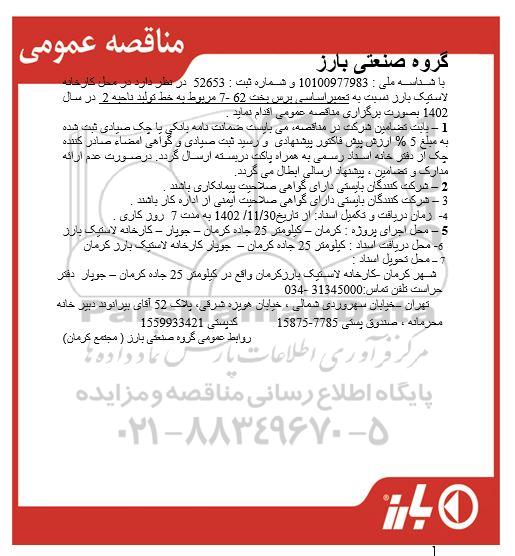 مناقصه عمومی
گروه صنعتی بارز
با شناسه ملی : 10100977983 و شماره ثبت : 52653 در نظر دارد در محل کارخانه
لاستیک بارز نسبت به تعمیراساسی پرس پخت 62 -7 مربوط به خط تولید ناحیه 2 در سال
1402 بصورت برگزاری مناقصه عمومی اقدام نماید .
1 – بابت تضامین شرکت در مناقصه، می بایست ضمانت نامه بانکی یا چک صیادی ثبت شده
به مبلغ 5 % ارزش پیش فاکتور پیشنهادی و رسید ثبت صیادی و گواهی امضاء صادر کننده
چک از دفتر خانه اسناد رسمی به همراه پاکت دربسته ارسال گردد. درصورت عدم ارائه
مدارک و تضامین ، پیشنهاد ارسالی ابطال می گردد.
2 – شرکت کنندگان بایستی دارای گواهی صلاحیت پیمانکاری باشند .
3 – شرکت کنندگان بایستی دارای گواهی صلاحیت ایمنی از اداره کار باشند .
4- زمان دریافت و تکمیل اسناد: از تاریخ1402 /11/30 به مدت 7 روز کاری .
5 – محل اجرای پروژه : کرمان – کیلومتر 25 جاده کرمان – جوپار – کارخانه لاستیک بارز
6- محل دریافت اسناد : کیلومتر 25 جاده کرمان – جوپار کارخانه لاستیک بارز کرمان
7 – محل تحویل اسناد :
شهر کرمان -کارخانه لاستیک بارزکرمان واقع در کیلومتر 25 جاده کرمان – جوپار دفتر
حراست تلفن تماس:31345000 -034
تهران –خیابان سهروردی شمالی ، خیابان هویزه شرقی، پلاک 52 آقای بیرانوند دبیر خانه
محرمانه ، صندوق پستی 7785-15875 کدپستی 1559933421
روابط عمومی گروه صنعتی بارز ( مجتمع کرمان)
مرکز فرآوری اطلاعات پارس نماد داده‌ها
پایگاه اطلاع رسانی مناقصه و مزایده
۰۲۱-۸۸۳۴۹۶۷۰-۵
بارز
1